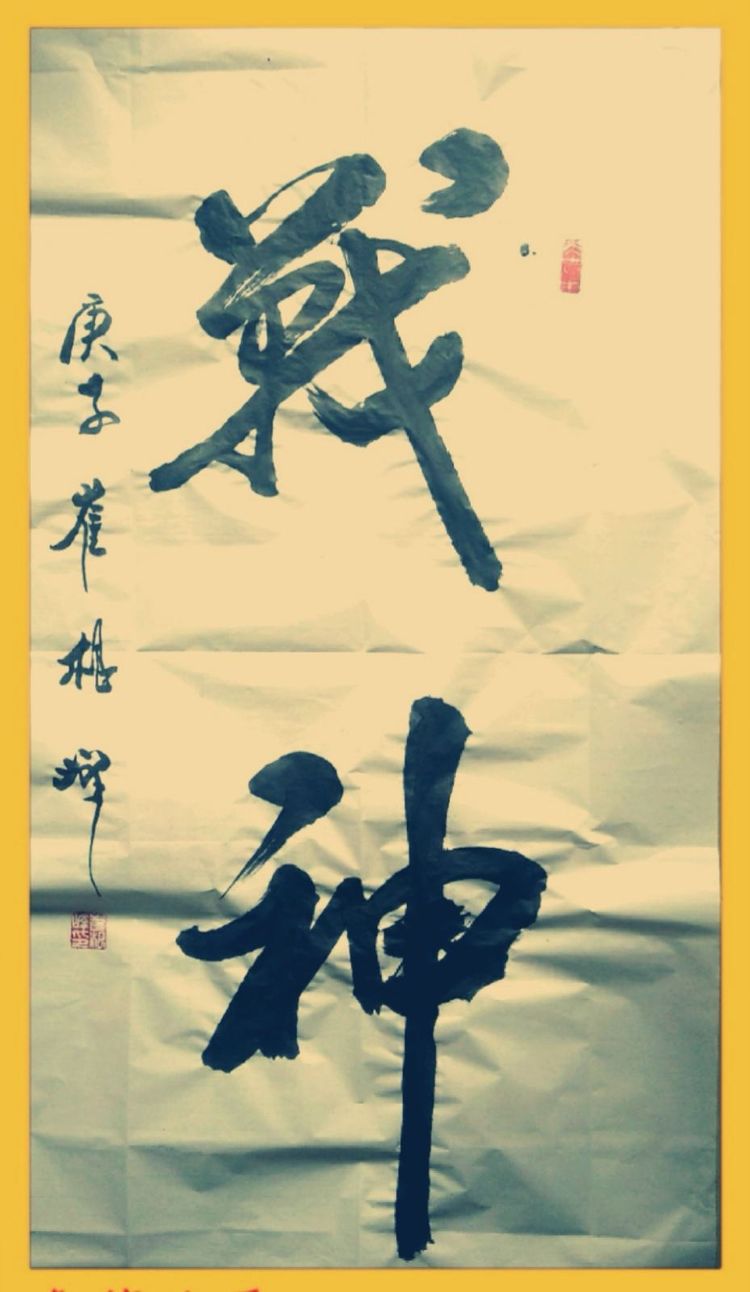 戰神
庚子崔根輝